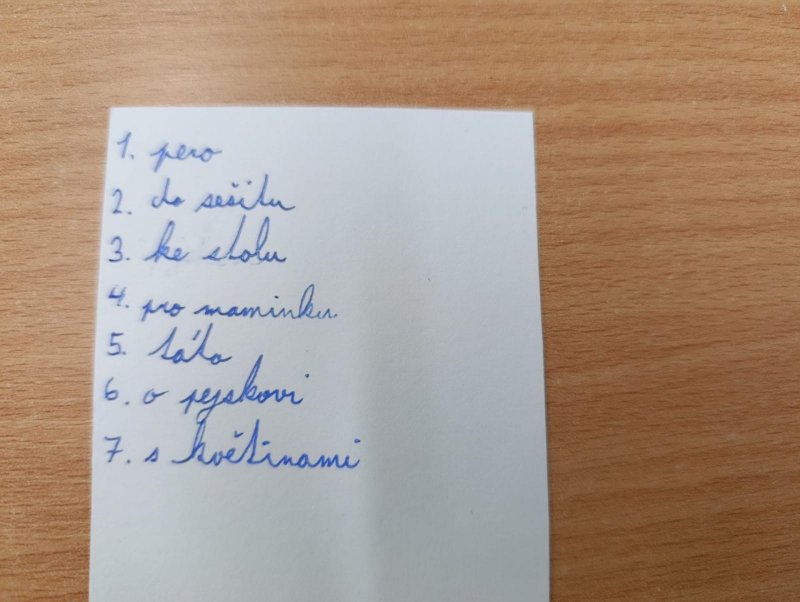 1. pero
2. do sešitu
3. ke stolu
4. pro maminku
5. táto
6. o pejskovi
7. s květinami